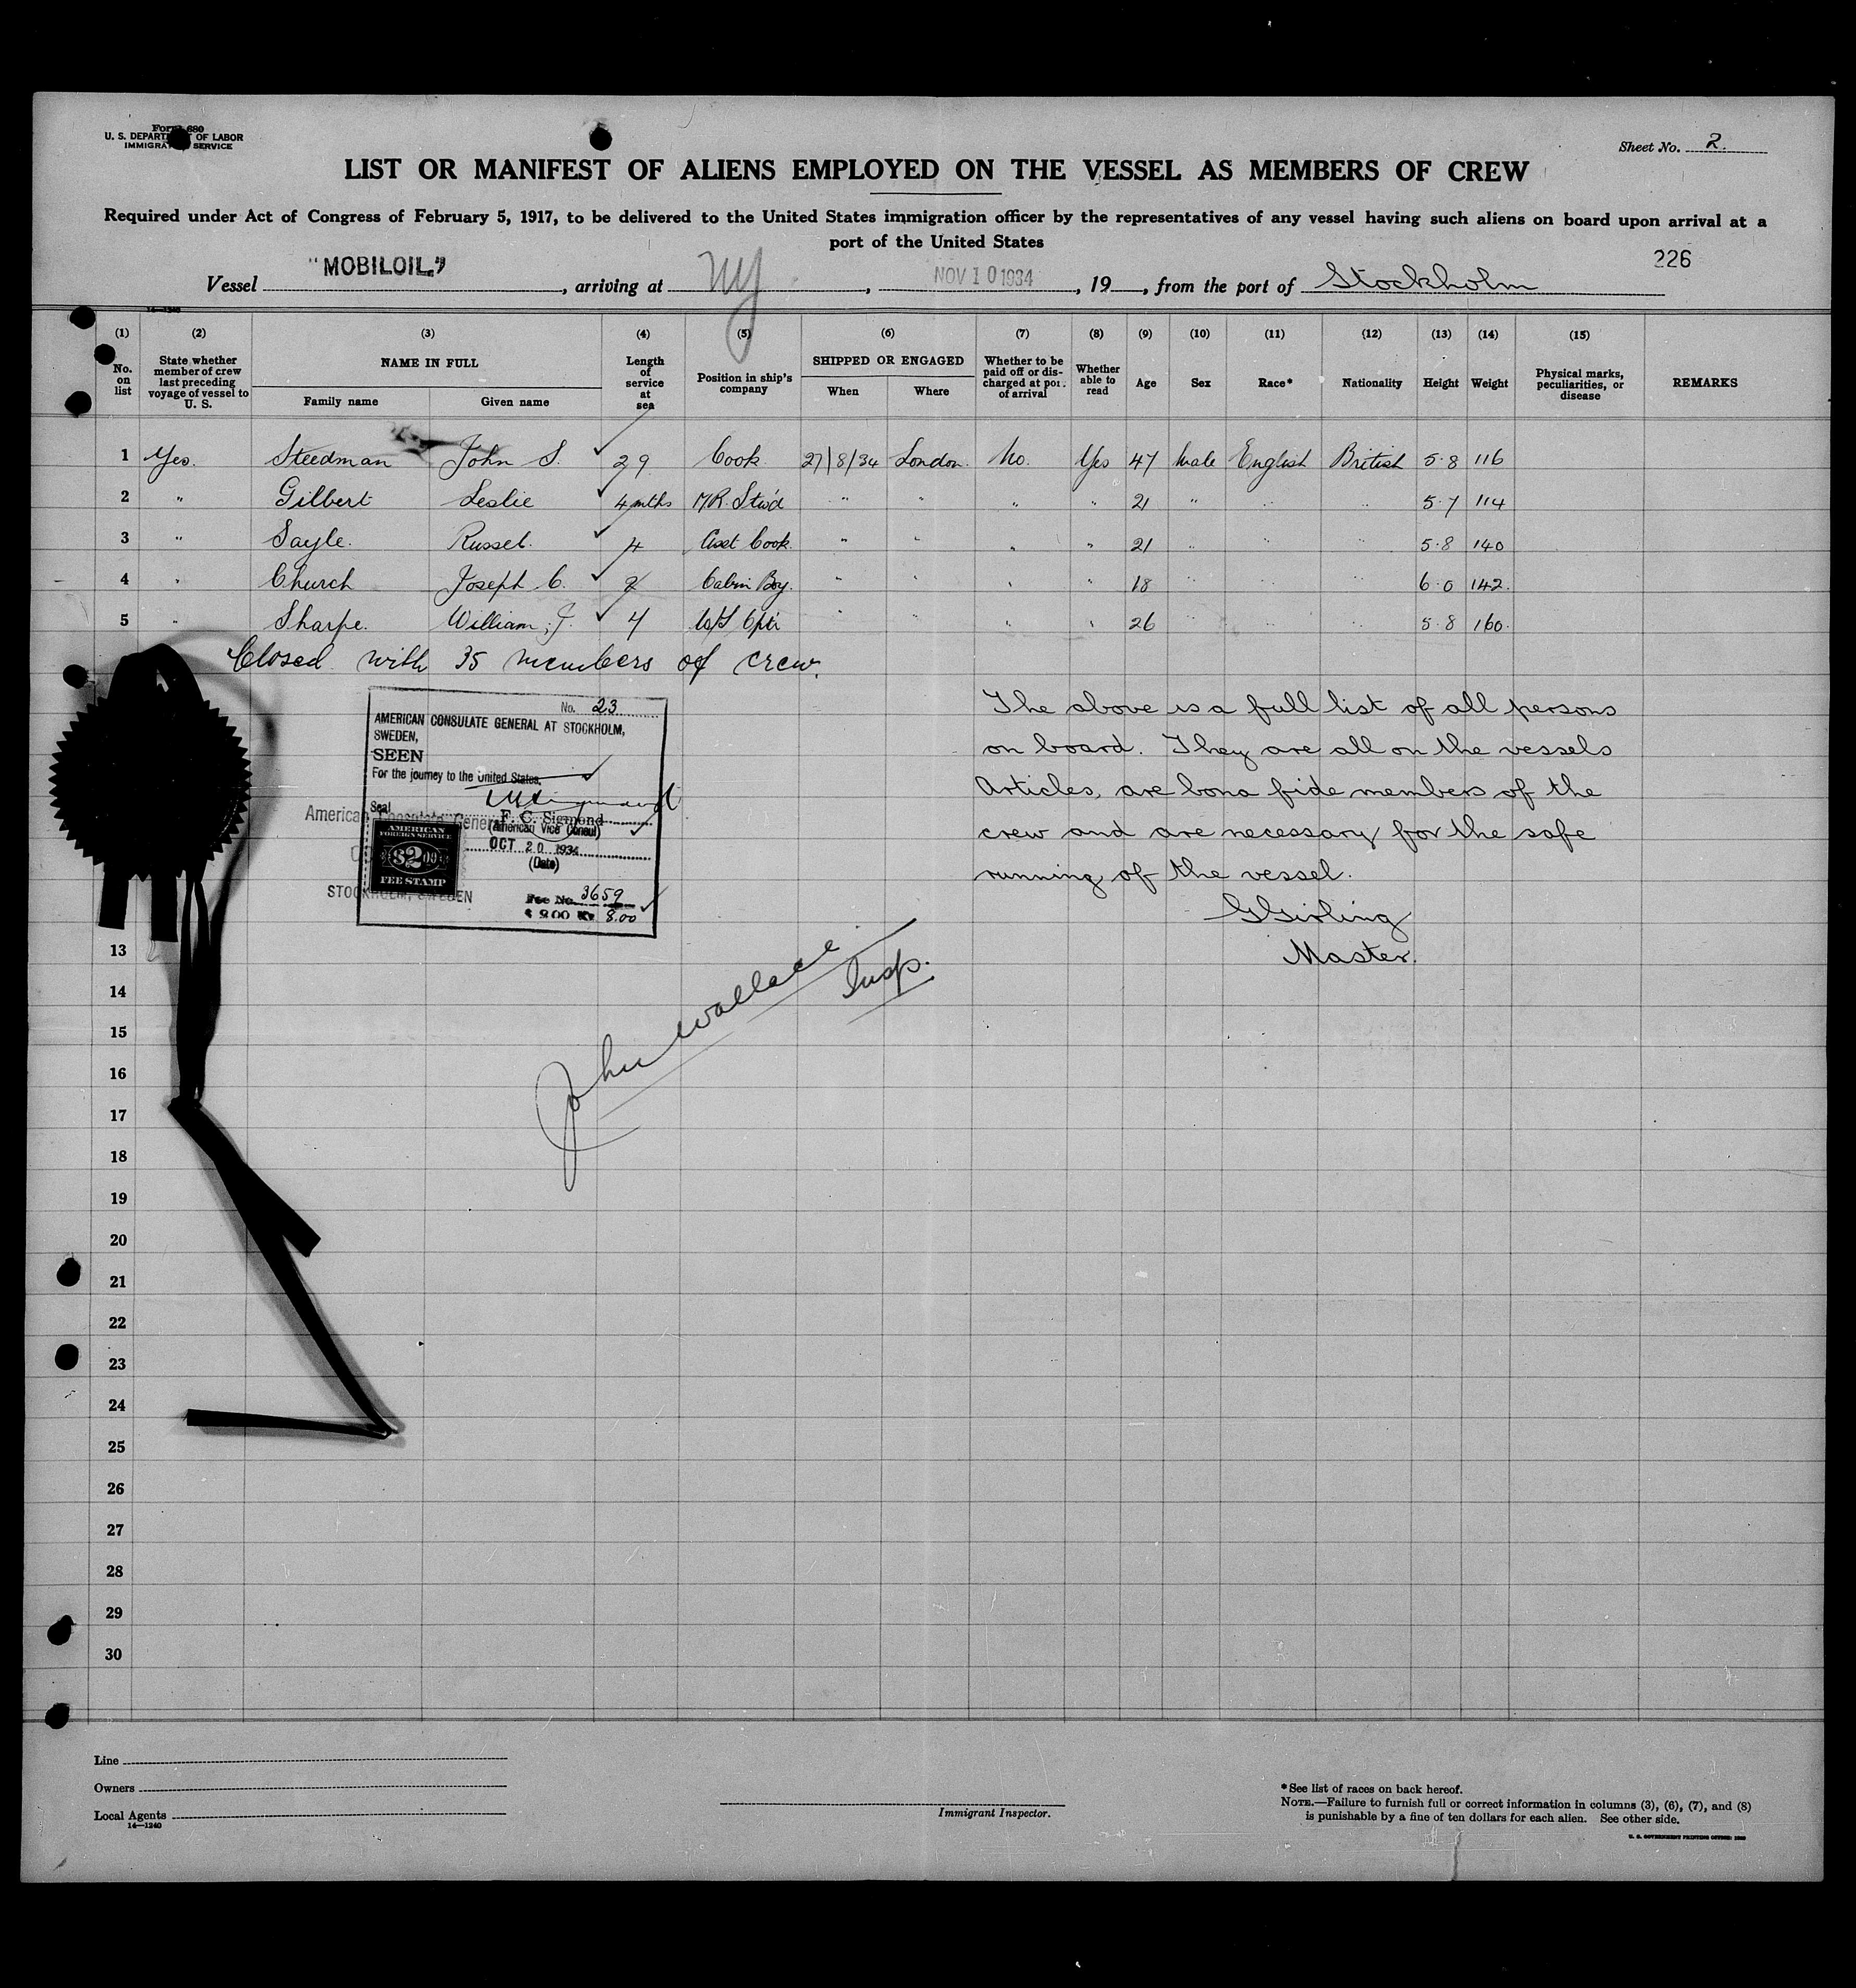 Form 680
U. S. DEPARTMENT OF LABOR
IMMIGRATION SERVICE
Sheet No. 2.
LIST OR MANIFEST OF ALIENS EMPLOYED ON THE VESSEL AS MEMBERS OF CREW
Required under Act of Congress of February 5, 1917, to be delivered to the United States immigration officer by the representatives of any vessel having such aliens on board upon arrival at a
port of the United States
226
Vessel "MOBILOIL", arriving at NY, NOV 10 1934, 19 , from the port of Stockholm
14—1240
(1) (2) (3) (4) (5) (6) (7) (8) (9) (10) (11) (12) (13) (14) (15)
No. on list
State whether member of crew last preceding voyage of vessel to U. S.
NAME IN FULL
Family name Given name
Length of service at sea
Position in ship's company
SHIPPED OR ENGAGED
When Where
Whether to be paid off or discharged at port of arrival
Whether able to read
Age Sex Race* Nationality Height Weight
Physical marks, peculiarities, or disease
REMARKS
1 Yes. Steedman John S. 29 Cook 27/8/34 London. No. Yes 47 Male English British 5·8 116
2 " Gilbert Leslie 4 mths M.R. Stw'd " " " " 21 " " " 5·7 114
3 " Sayle. Russel. 4 Asst Cook. " " " " 21 " " " 5·8 140
4 " Church Joseph C. 2 Cabin Boy. " " " " 18 " " " 6·0 142.
5 " Sharpe. William J. 4 W/T Optr " " " " 26 " " " 5·8 160.
Closed with 35 members of crew.
No. 23
AMERICAN CONSULATE GENERAL AT STOCKHOLM,
SWEDEN,
SEEN
For the journey to the United States.
Seal
F. C. Sigmond
(American Vice Consul)
OCT 20 1934
(Date)
Fee No. 3659
$ 2.00 Kr 8.00
AMERICAN
FOREIGN SERVICE
$2.00
FEE STAMP
American Consulate General
STOCKHOLM, SWEDEN
The above is a full list of all persons
on board. They are all on the vessels
Articles, are bona fide members of the
crew and are necessary for the safe
running of the vessel.
G Girling
Master.
John Wallace
Insp.
13
14
15
16
17
18
19
20
21
22
23
24
25
26
27
28
29
30
Line
Owners
Local Agents
14—1240
Immigrant Inspector.
*See list of races on back hereof.
NOTE.—Failure to furnish full or correct information in columns (3), (6), (7), and (8)
is punishable by a fine of ten dollars for each alien. See other side.